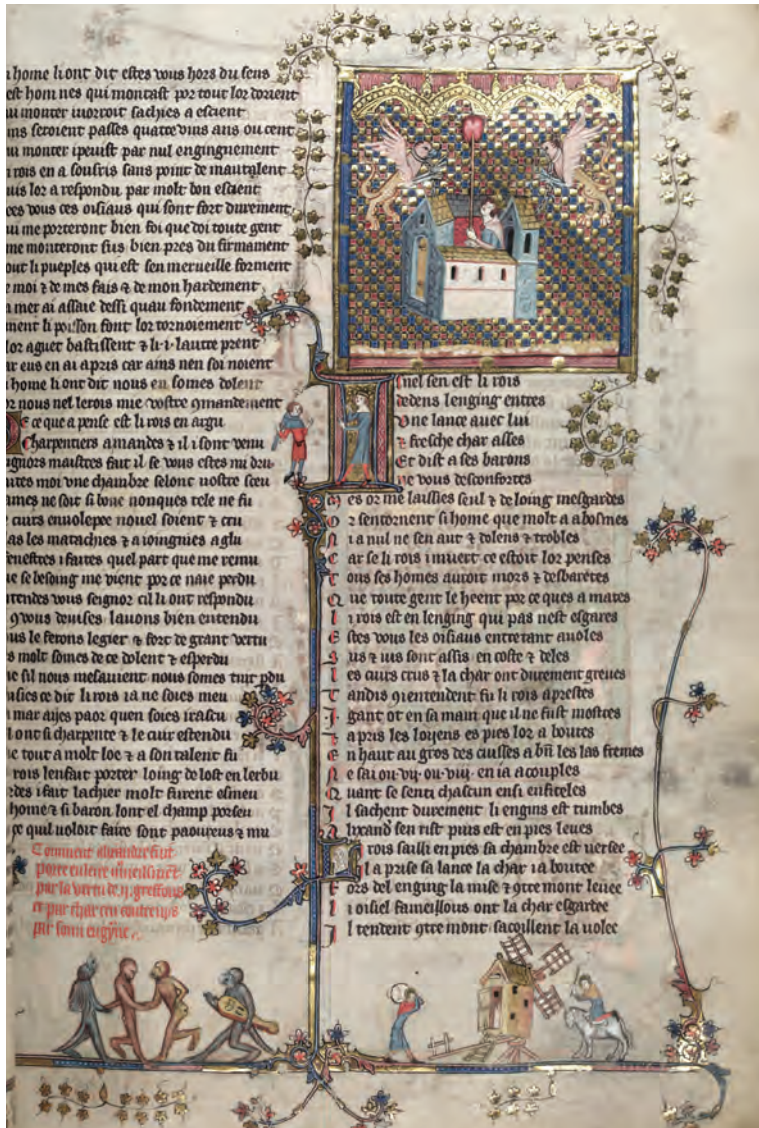 home li ont dit estes vous hors du sens
est hom nes qui montast por tout lor donent
ui monter uorroit sachies a escient
ins seroient passes quatre vins ans ou cent
ui monter i peust par nul engingnement
i rois en a sousris sans point de mautalent
uis lor a respondu par molt bon escient
ces vous ces oisiaus qui sont fort durement
ui me porteront bien foi que doi toute gent
me monteront sus bien pres du firmament
out li pueples qui est sen merueille forment
e moi ⁊ de mes fais ⁊ de mon hardement
n mer ai assaie dessi quau fondement
ment li poisson font lor tornoiement
lor aguet bastissent ⁊ li ·i· lautre prent
ar eus en ai apris car ains nen soi noient
i home li ont dit nous en somes dolent
or nous nel lerois mie vostre 9mandement
e ce que a pense est li rois en argu
Charpentiers a mandes ⁊ il i sont venu
ignors maistres fait il se vous estes mi dru
ites moi vne chambre selonc nostre sceu
ames ne soit si bone nonques tele ne fu
e cuirs enuolepee nouel soient ⁊ cru
as les mataches ⁊ a ioingnies a glu
enestres i faites quel part que me remu
ue se besoing me vient por ce naie perdu
ntendes vous seignor cil li ont respondu
9 vous deuises lauons bien entendu
ous le ferons legier ⁊ fort de grant vertu
s molt somes de ce dolent ⁊ esperdu
ue sil nous mesauient nous somes tuit pdu
aisies ce dit li rois ia ne soies meu
i mar aijes paor quen soies irascu
il ont si charpente ⁊ le cuir estendu
e tout a molt loe ⁊ a son talent fu
rois lenfait porter loing de lost en lerbu
des i fait lachier molt furent esmeu
i home ⁊ si baron lont el champ porseu
ce quil uoloit faire sont paoureus ⁊ mu
Comment alixandre fuit
porte en lair
par la vertu de ·ij· greffons
et par char
par soun engyne
Inel sen est li rois
dedens lenging entres
Vne lance auec lui
⁊ fresche char asses
Et dist a ses barons
ne vous desconfortes
M es or me laissies seul ⁊ de loing mesgardes
O r sen tornent si home que molt a abosmes
N i a nul ne sen aut ⁊ dolens ⁊ trobles
C ar se li rois i muert ce estoit lor penses
T ous ses homes auroit mors ⁊ desbaretes
Q ue toute gent le heent por ce ques a mates
L i rois est en lenging qui pas nest esgares
E stes vous les oisiaus entretant auoles
S us ⁊ ius sont assis en coste ⁊ deles
L es cuirs crus ⁊ la char ont durement greues
T andis 9 entendent fu li rois aprestes
J· gant ot en sa main que il ne fust mostres
T apres les loijens es pies lor a boutes
E n haut au gros des cuisses a bn les las fremes
N e sai ou ·vij· ou ·viij· en i a acouples
Q uant se senti chascun ensi enficeles
I l sachent durement li engins est tumbes
A lixand sen rist puis est en pies leues
Li rois sailli en pies sa chambre est versee
I l a prise sa lance la char i a boutee
F ors del enging la mise ⁊ 9tre mont leuee
L i oisiel fameillous ont la char esgardee
I l tendent 9tre mont sacoillent la uolee